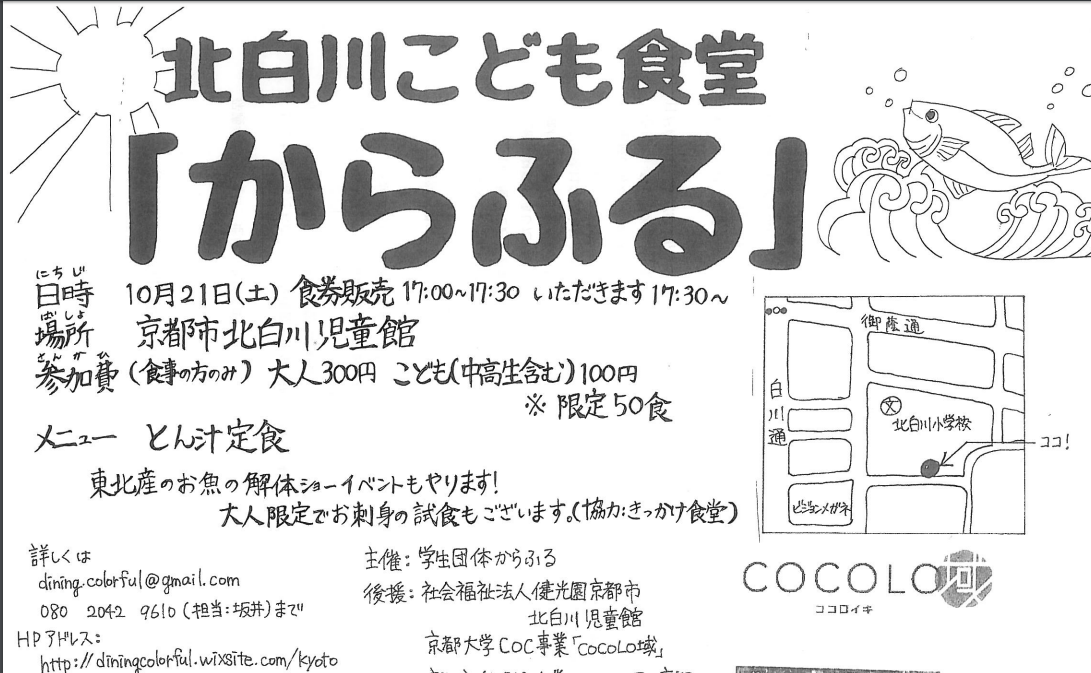 北白川こども食堂
「からふる」
にちじ
日時 10月21日(土) 食券販売 17:00~17:30 いただきます 17:30~
ばしょ
場所 京都市北白川児童館
さんかひ
参加費 (食事の方のみ) 大人300円 こども(中高生含む)100円
※ 限定50食
メニュー とん汁定食
東北産のお魚の解体ショーイベントもやります!
大人限定でお刺身の試食もございます。(協力:きっかけ食堂)
御蔭通
白川通
文
北白川小学校
ココ!
ビジョンメガネ
詳しくは
dining.colorful@gmail.com
080 2042 9610 (担当:坂井)まで
HPアドレス:
http://diningcolorful.wixsite.com/kyoto
主催: 学生団体からふる
後援: 社会福祉法人健光園京都市
北白川児童館
京都大学COC事業「COCOLO域」
COCOLO域
ココロイキ